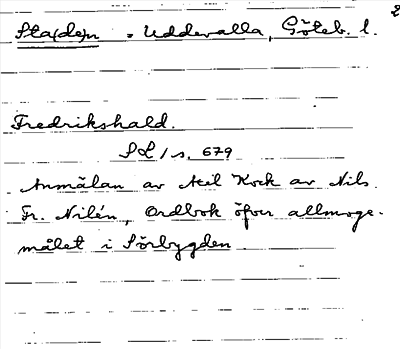 2
Sta(de)n = Uddevalla, Göteb. l.
Fredrikshald.
SL 1 s. 679
Anmälan av Axel Kock av Nils
Fr. Nilén, Ordbok öfver allmoge-
målet i Sörbygden